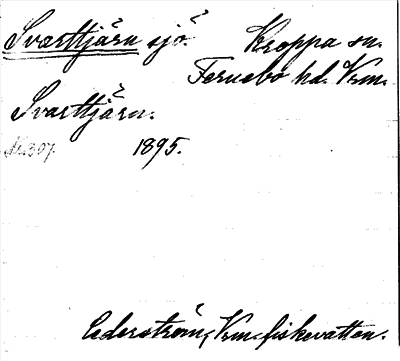 Svarttjärn sjö. Kroppa sn.
Fernebo hd. Vrm.
Svarttjärn.
1895.
Cederström, Vrm. fiskevatten.